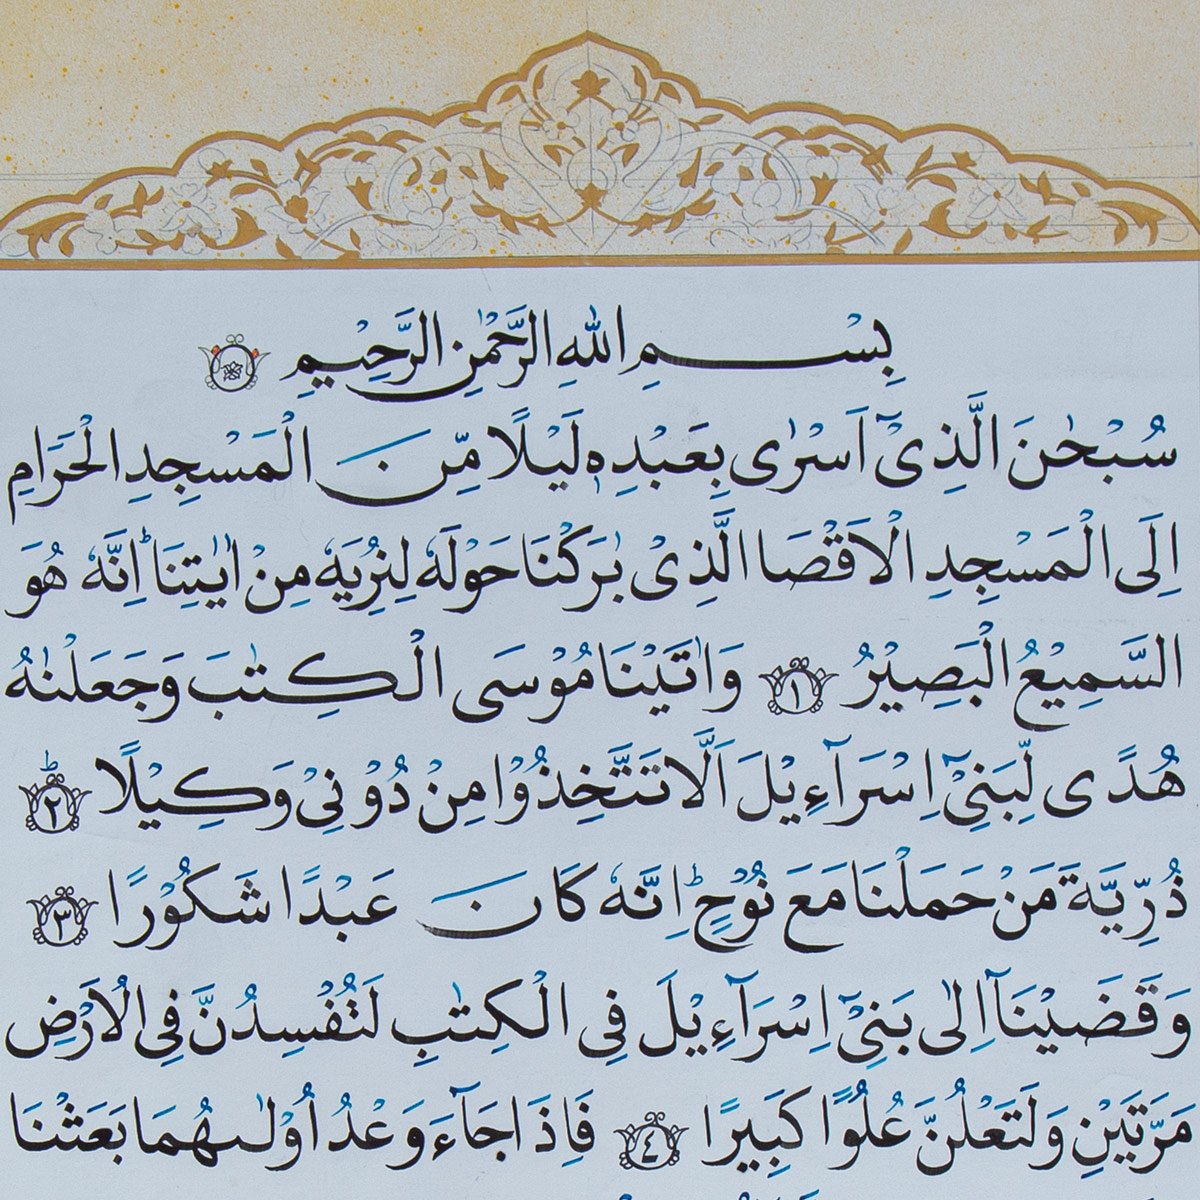 بِسْمِ اللهِ الرَّحْمٰنِ الرَّحِيْمِ
سُبْحٰنَ الَّذِیْۤ اَسْرٰى بِعَبْدِهٖ لَيْلًا مِّنَ الْمَسْجِدِ الْحَرَامِ
اِلَى الْمَسْجِدِ الْاَقْصَا الَّذِیْ بٰرَكْنَا حَوْلَهٗ لِنُرِيَهٗ مِنْ اٰيٰتِنَا ؕ اِنَّهٗ هُوَ
السَّمِيْعُ الْبَصِيْرُ ﴿۱﴾ وَاٰتَيْنَا مُوْسَى الْكِتٰبَ وَجَعَلْنٰهُ
هُدًى لِّبَنِیْۤ اِسْرَآءِيْلَ اَلَّا تَتَّخِذُوْا مِنْ دُوْنِیْ وَكِيْلًا ؕ ﴿۲﴾
ذُرِّيَّةَ مَنْ حَمَلْنَا مَعَ نُوْحٍ ؕ اِنَّهٗ كَانَ عَبْدًا شَكُوْرًا ﴿۳﴾
وَقَضَيْنَاۤ اِلٰى بَنِیْۤ اِسْرَآءِيْلَ فِی الْكِتٰبِ لَتُفْسِدُنَّ فِی الْاَرْضِ
مَرَّتَيْنِ وَلَتَعْلُنَّ عُلُوًّا كَبِيْرًا ﴿٤﴾ فَاِذَا جَآءَ وَعْدُ اُوْلٰىهُمَا بَعَثْنَا